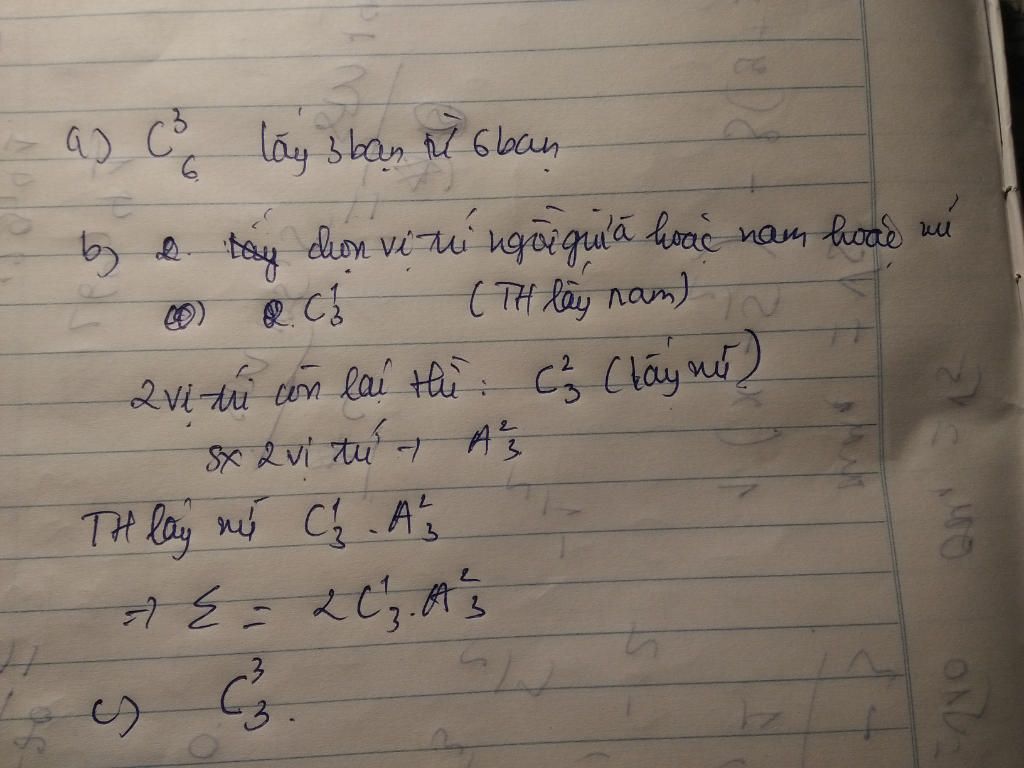 a) C³₆ lấy 3 bạn từ 6 bạn
b) chọn vị trí ngồi giữa hoặc nam hoặc nữ
C¹₃ (TH lấy nam)
2 vị trí còn lại thì: C²₃ (lấy nữ)
sx 2 vị trí → A²₃
TH lấy nữ C¹₃ . A²₃
⇒ Σ = 2C¹₃.A²₃
c) C³₃.